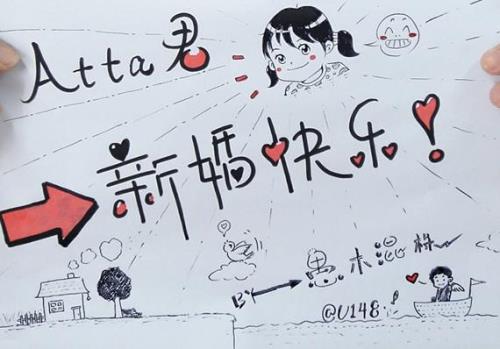 Atta君
新婚快乐！
BY 愚木混株
@U148